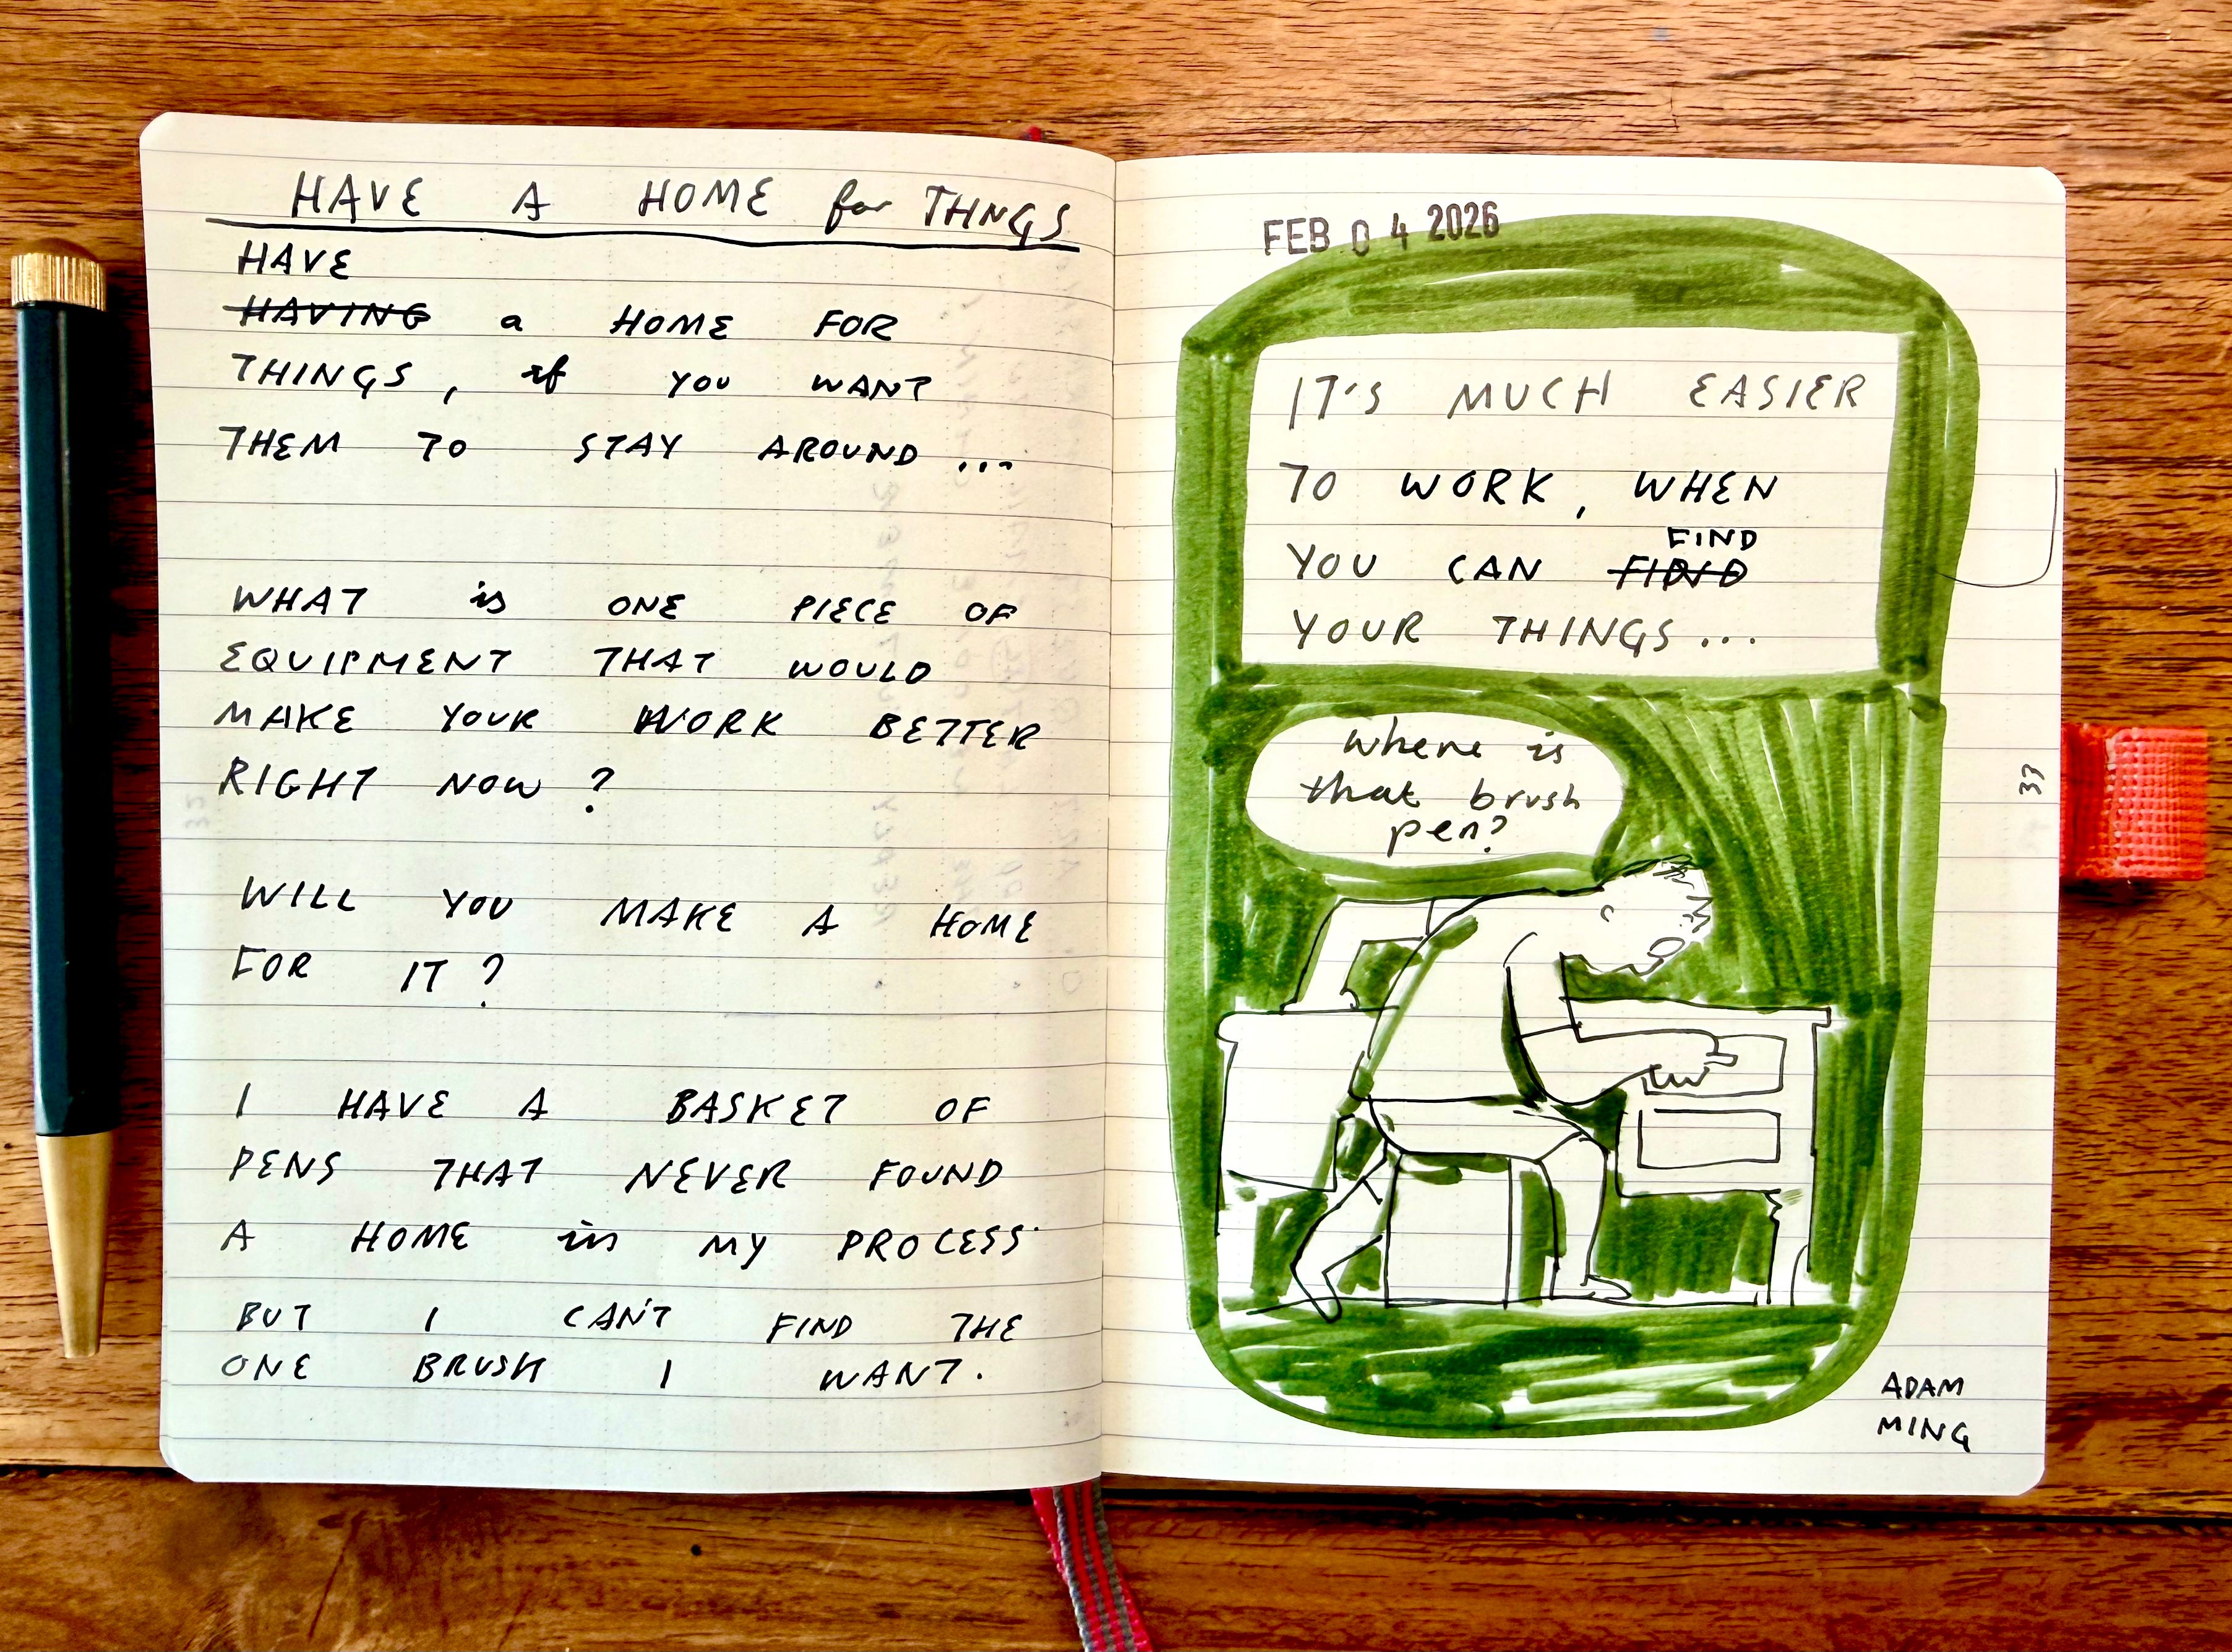 HAVE A HOME for THNGS
HAVE
HAVING a HOME FOR
THINGS, if YOU WANT
THEM TO STAY AROUND ...
WHAT is ONE PIECE OF
EQUIPMENT THAT WOULD
MAKE YOUR WORK BETTER
RIGHT NOW ?
WILL YOU MAKE A HOME
FOR IT ?
I HAVE A BASKET OF
PENS THAT NEVER FOUND
A HOME in MY PROCESS
BUT I CAN'T FIND THE
ONE BRUSH I WANT.
32
FEB 04 2026
IT'S MUCH EASIER
TO WORK, WHEN
FIND
YOU CAN
YOUR THINGS ...
where is
that brush
pen?
33
ADAM
MING